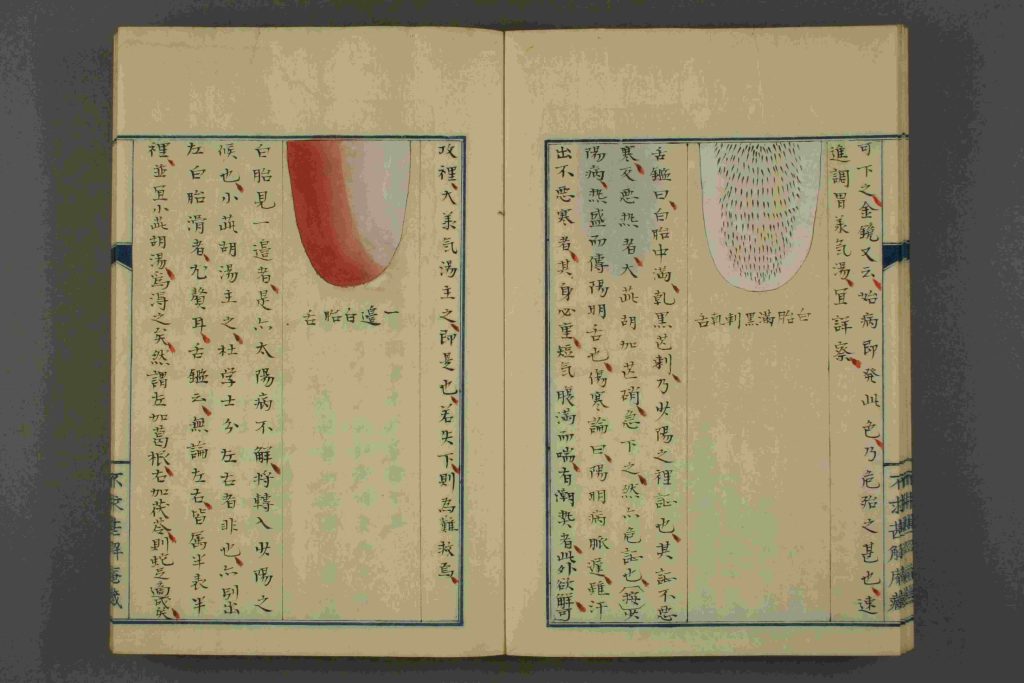 可下之金鏡又云始病即発此色乃危殆之甚也速
進調胃承気湯宜詳察
白胎滿黑刺乹舌
舌鑑曰白胎中滿乹黑芒刺乃少陽之裡証也其証不惡
寒又惡熱者大茈胡加芒硝急下之然亦危証也按少
陽病熱盛而傳陽明舌也傷寒論曰陽明病脈遲雖汗
出不惡寒者其身必重短気腹滿而喘有潮熱者此外欲解可
攻裡大承気湯主之即是也若失下則為難救焉
一邊白胎舌
白胎見一邊者是亦太陽病不解将轉入少陽之
候也小茈胡湯主之杜学士分左右者非也亦別出
左白胎滑者尤贅耳舌鑑云無論左右皆属半表半
裡並宜小茈胡湯為得之矣然謂左加葛根右加茯苓則蛇足画成矣
不求甚解庵藏